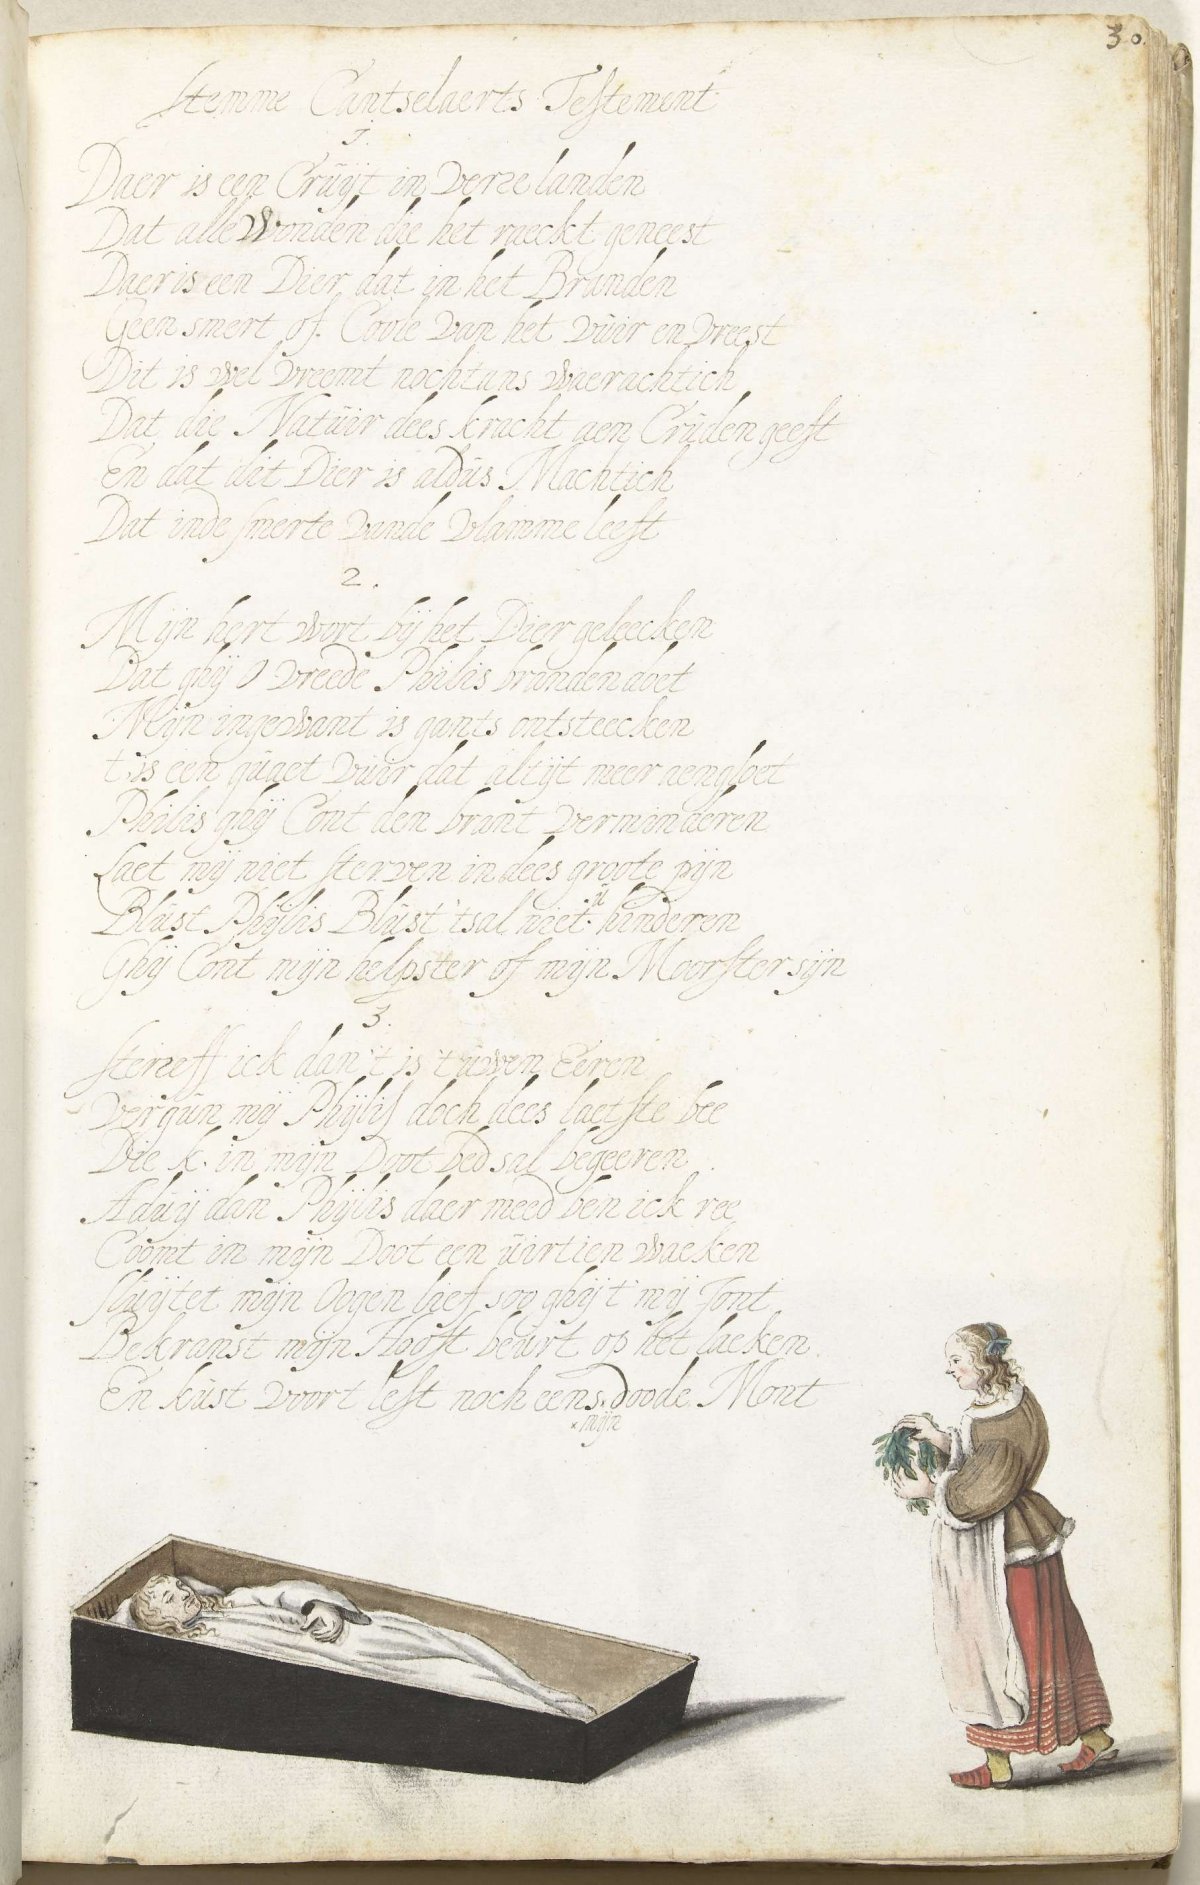 30.
Stemme Cantselaerts Testement
1.
Daer is een Crúyt in verre landen
Dat alle Wonden die het raeckt geneest
Daer is een Dier dat in het Branden
Geen smert of Coole van het vúir en vreest
Dit is wel vreemt nochtans waerachtich
Dat die Natúir dees kracht aen Crúden geeft
En dat dit Dier is aldús Machtich
Dat inde smerte vande vlamme leeft
2.
Mijn hert wort bij het Dier geleecken
Dat ghij O vreede Philis branden doet
Mijn ingewant is gants ontsteecken
t is een qúaet vúir dat altijt meer aengloet
Philis ghij Cont den brant verminderen
Laet mij niet sterven in dees groote pijn
Blúst Phijlis Blúst 'tsal niet ú hinderen
Ghij Cont mijn helpster of mijn Moorster sijn
3.
Sterreff ick dan 't is t' úwen Eeren
Vergún mij Phijlis doch dees laetste bee
Die k. in mijn Doot bed sal begeeren
Adúij dan Phijlis daer meed ben ick ree
Coomt in mijn Doot een úirtien waeken
Slúijtet mijn Oogen lief soo ghij 't mij Jont
Bekranst mijn Hooft beúrt op het laeken
En kúst voort lest noch eens × doode Mont
× mijn